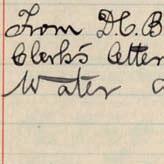 From D.C. B
Clerks Atten
Water a